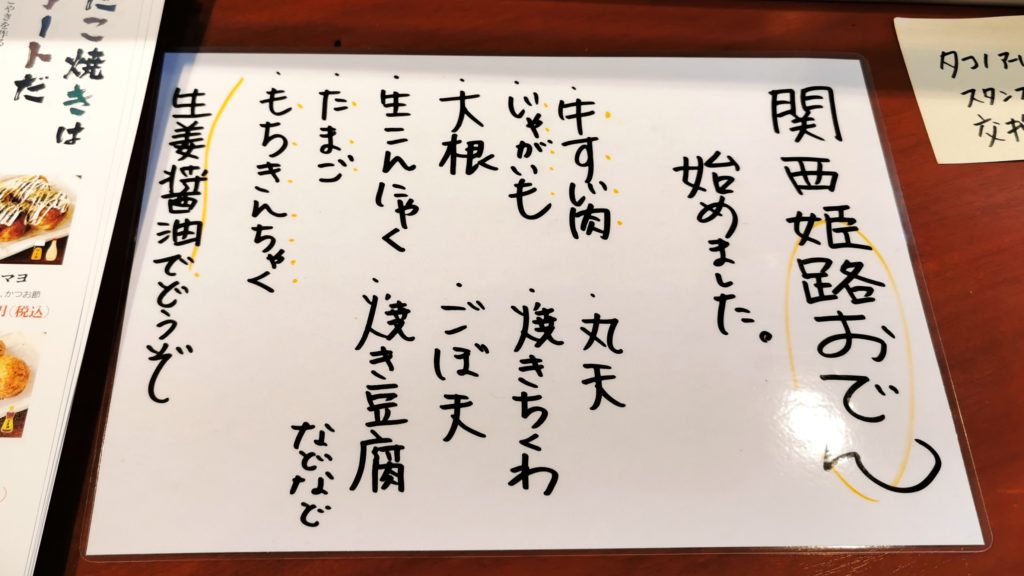 関西姫路おでん
始めました。
・牛すじ肉
・じゃがいも
大根
・生こんにゃく
・たまご
・もちきんちゃく
・丸天
・焼きちくわ
・ごぼ天
・焼き豆腐
などなど
生姜醤油でどうぞ
こ焼きは
ートだ
マヨ
、かつお節
(税込)
スタンプ